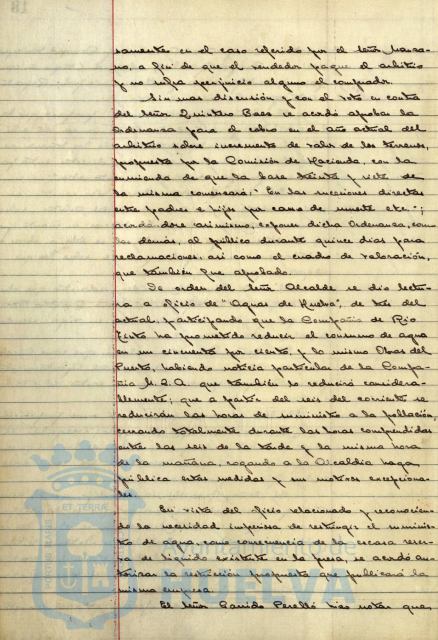 samente en el caso referido por el señor Manza-
no, a fin de que el vendedor pague el arbitrio
y no sufra perjuicio alguno el comprador.
Sin mas discusión y con el voto en contra
del señor Quintero Baes se acordó aprobar la
Ordenanza para el cobro en el año actual del
arbitrio sobre incremento de valor de los terrenos,
propuesta por la Comisión de Hacienda, con la
enmienda de que la base treinta y siete de
la misma comenzará: "En las succiones directas
entre padres e hijos por causa de muerte etc.";
acordándose asimismo, exponer dicha Ordenanza, como
las demás, al público durante quince días para
reclamaciones, así como el cuadro de valoración,
que también fue aprobado.
De orden del señor Alcalde se dio lectu-
ra a oficio de "Aguas de Huelva", de tres del
actual, participando que la Compañía de Rio
Tinto ha prometido reducir el consumo de agua
en un cincuenta por ciento, y la misma Obras del
Puerto, habiendo noticia particular de la Compa-
ñía M.Z.A. que también lo reducirá considera-
blemente; que a partir del seis del corriente se
reducirán las horas de suministro a la población,
cerrando totalmente durante las horas comprendidas
entre las seis de la tarde y la misma hora
de la mañana, rogando a la Alcaldía haga
pública estas medidas y sus motivos excepciona-
les.
En vista del oficio relacionado y reconocien-
do la necesidad imperiosa de restringir el suminis-
tro de agua, como consecuencia de la escasa reser-
va de líquido existente en la presa, se acordó au-
torizar la restricción propuesta que publicará la
misma empresa.
El señor Garrido Perelló hizo notar que,
PORTUS MARIS ET TERRAE
HUELVA